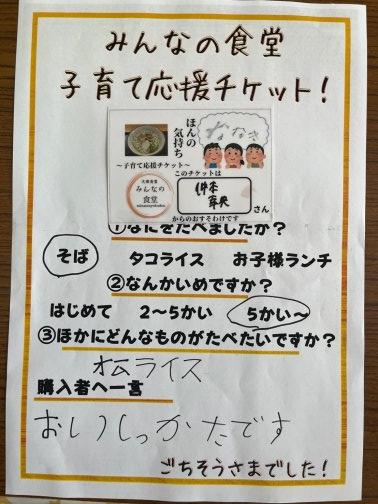 みんなの食堂
子育て応援チケット!
ほんの
気持ち
~子育て応援チケット~
このチケットは
みんなの
食堂
さん
からのおすそわけです
①なにをたべましたか?
そば タコライス お子様ランチ
②なんかいめですか?
はじめて 2~5かい 5かい~
③ほかにどんなものがたべたいですか?
ムライス
購入者へ一言
おいしかたです
ごちそうさまでした!